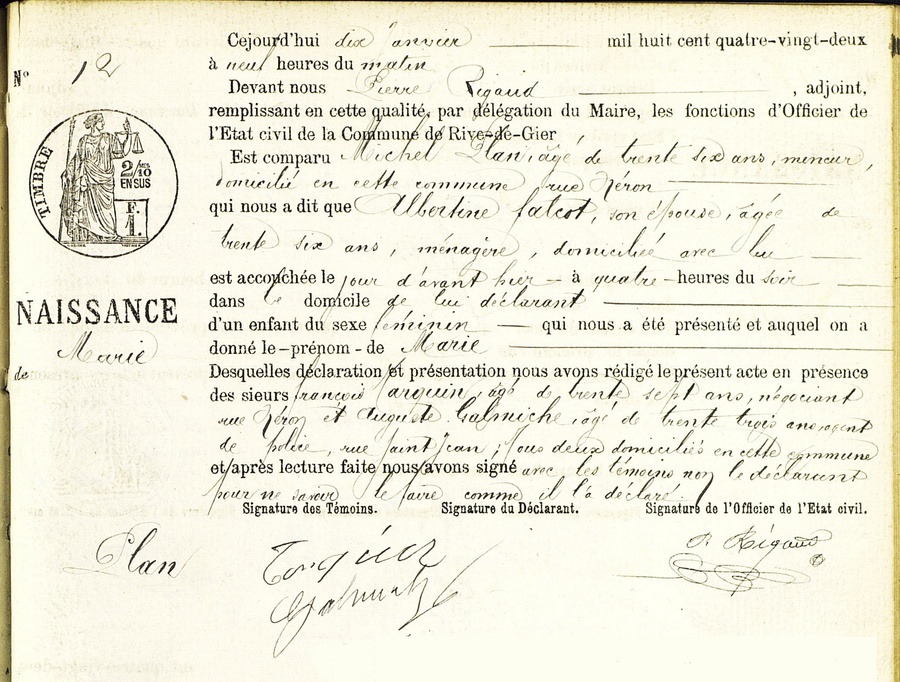 Cejourd'hui dix janvier mil huit cent quatre-vingt-deux
N° 12
à neuf heures du matin
Devant nous Pierre Rigaud , adjoint,
remplissant en cette qualité, par délégation du Maire, les fonctions d'Officier de
l'Etat civil de la Commune de Rive-de-Gier
Est comparu Michel Plan, âgé de trente six ans, mineur,
domicilié en cette commune, rue Néron
qui nous a dit que Albertine falcot, son épouse, âgée de
trente six ans, ménagère, domiciliée avec lui
est accouchée le jour d'avant hier à quatre heures du soir
dans le domicile de lui déclarant
d'un enfant du sexe féminin qui nous a été présenté et auquel on a
donné le-prénom-de Marie
Desquelles déclaration et présentation nous avons rédigé le présent acte en présence
des sieurs françois âgé de trente sept ans, négociant
rue Néron et Auguste Galmiche, âgé de trente trois ans, agent
de police, rue saint Jean ; tous deux domiciliés en cette commune
et après lecture faite nous avons signé avec les témoins non le déclarant
pour ne savoir le faire comme il l'a déclaré.
TIMBRE
2/10
EN SUS
F.
1.
NAISSANCE
de Marie
Plan
Signature des Témoins. Signature du Déclarant. Signature de l'Officier de l'Etat civil.
P. Rigaud